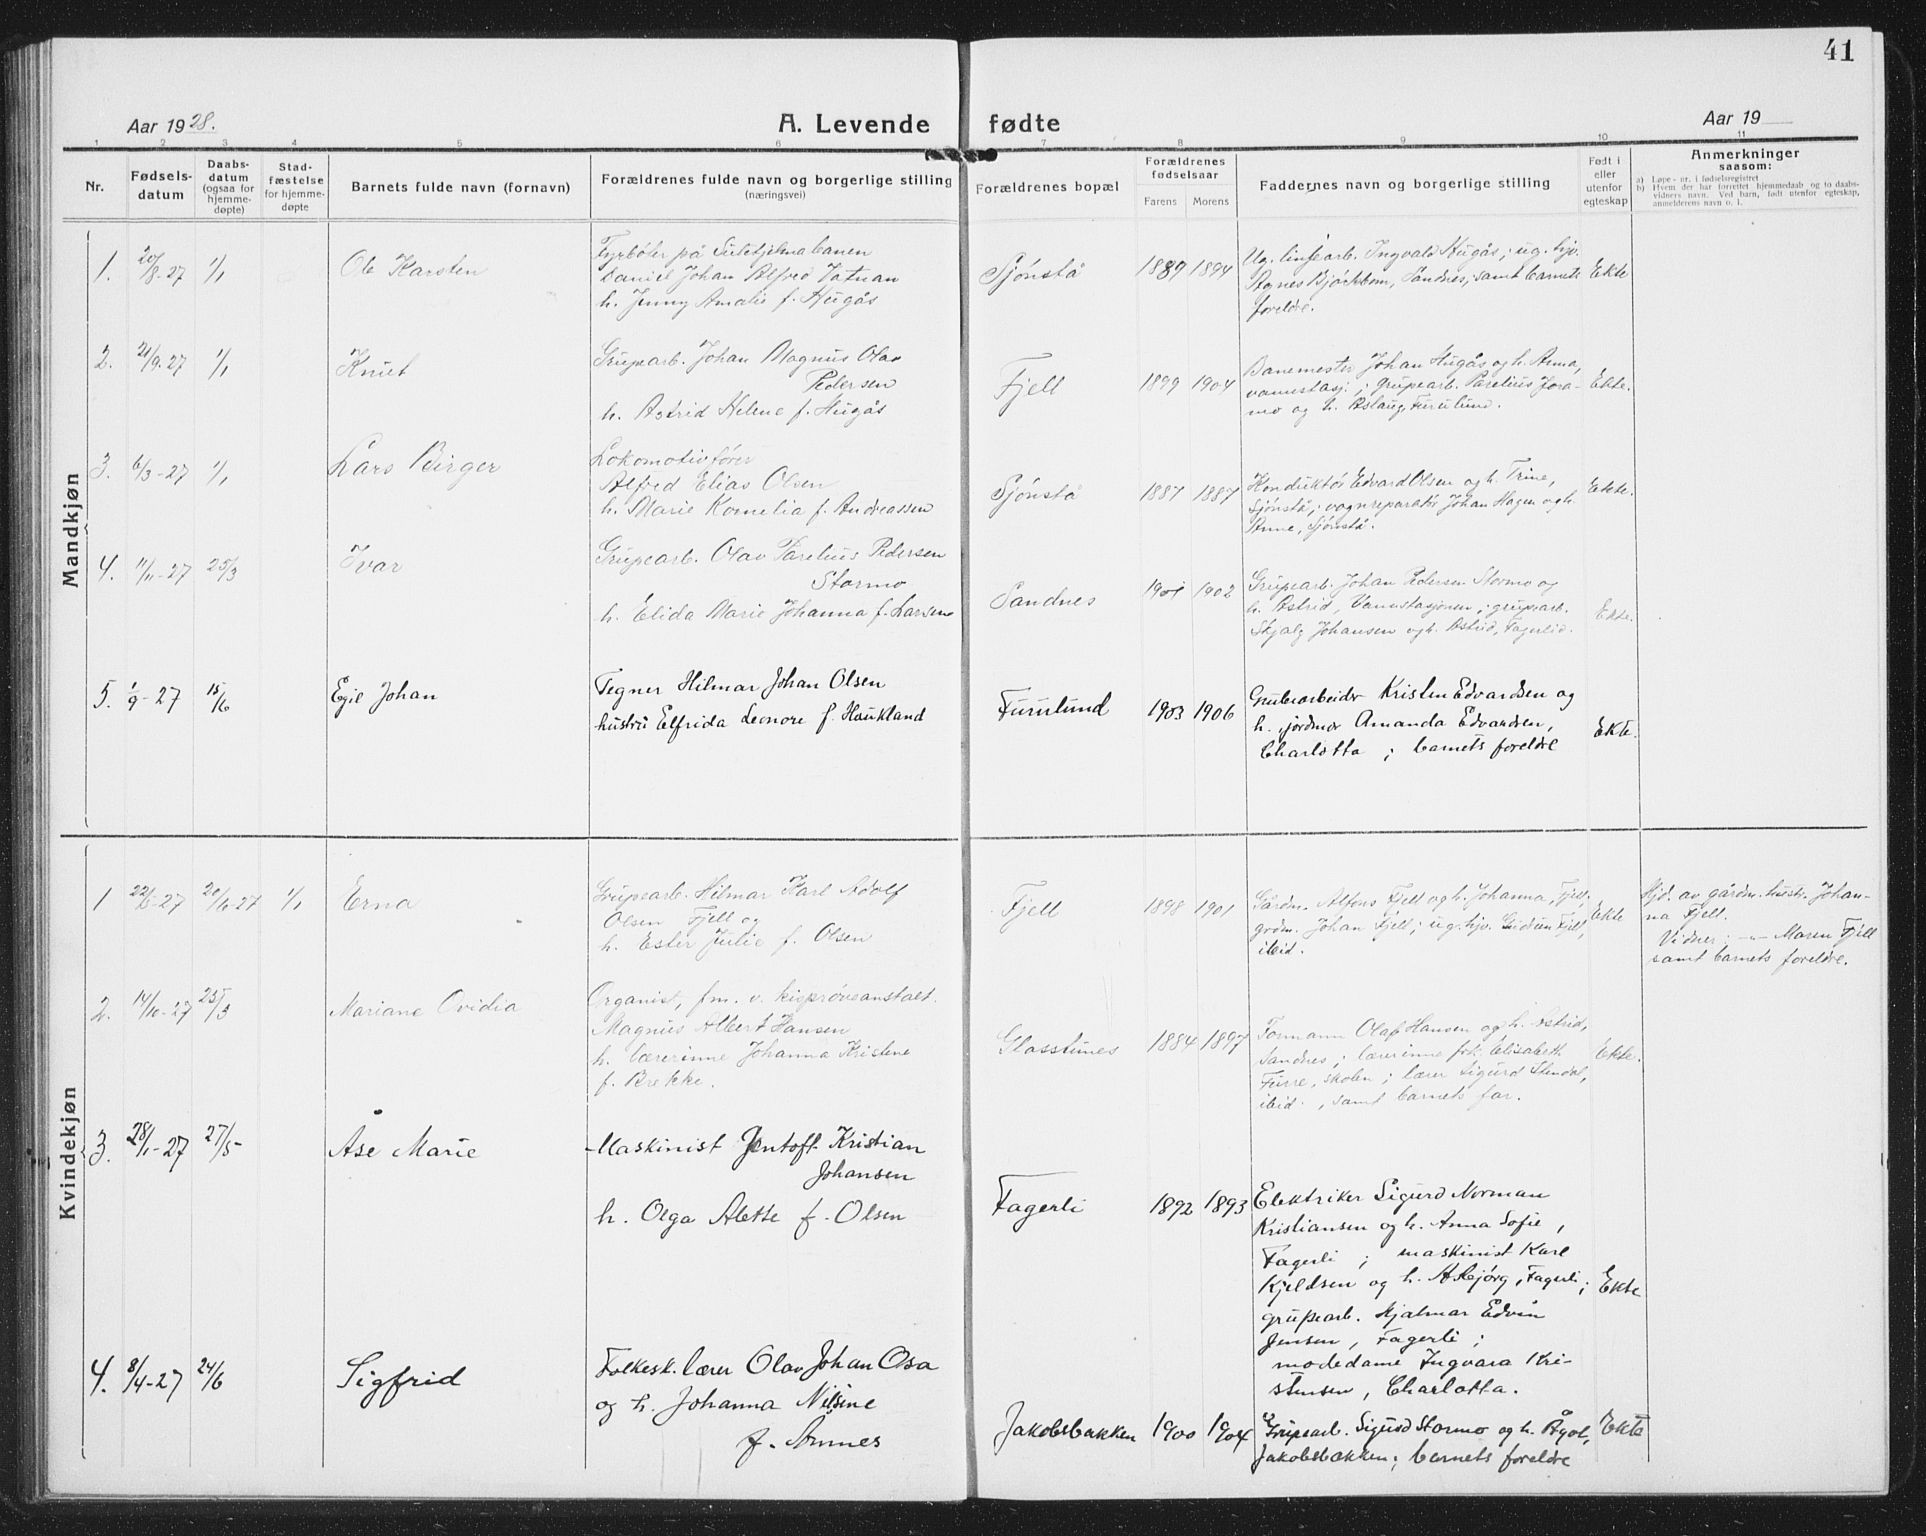 41
Aar 1928.
A. Levende fødte
Aar 19
1 2 3 4 5 6 7 8 9 10 11
Nr.
Fødsels-
datum
Daabs-
datum
(ogsaa for
hjemme-
døpte)
Stad-
fæstelse
for hjemme-
døpte
Barnets fulde navn (fornavn)
Forældrenes fulde navn og borgerlige stilling
(næringsvei)
Forældrenes bopæl
Forældrenes
fødselsaar
Farens Morens
Faddernes navn og borgerlige stilling
Født i
eller
utenfor
egteskap
Anmerkninger
saasom:
a) Løpe-nr. i fødselsregistret
b) Hvem der har forrettet hjemmedaab og to daabs-
vidners navn. Ved barn, født utenfor egteskap,
anmelderens navn o. l.
Mandkjøn
1. 20/8-27 1/1 Ole Karsten
Fyrbøter på Sulitjelmabanen
Daniel Johan Alfred Jatnan
h. Jenny Amalie f. Hugås
Sjønstå 1889 1894
Ug. linjearb. Ingvald Hugås; ug. hjv.
Agnes Bjørkbom, Sandnes; samt barnets
foreldre.
Ekte
2. 21/9-27 1/1 Knut
Grupearb. Johan Magnus Olav
Pedersen
h. Astrid Helene f. Hugås
Fjell 1899 1904
Banemester Johan Hugås og h. Anna,
vannstasj.; grupearb. Parelius Jora-
mo og h. Aslaug, Furulund.
Ekte.
3. 6/3-27 1/1 Lars Birger
Lokomotivfører
Alfred Elias Olsen
h. Marie Kornelia f. Andreassen
Sjønstå 1887 1887
Konduktør Edvard Olsen og h. Trine,
Sjønstå; vognreparatør Johan Hagen og h.
Anne, Sjønstå.
Ekte.
4. 11/11-27 25/3 Ivar
Grupearb. Olav Parelius Pedersen
Stormo
h. Elida Marie Johanna f. Larsen
Sandnes 1901 1902
Grupearb. Johan Pedersen Stormo og
h. Astrid, Vannstasjonen; grupearb.
Skjalg Johansen og h. Astrid, Fagerlid.
Ekte.
5. 1/9-27 15/6 Egil Johan
Tegner Hilmar Johan Olsen
hustru Elfrida Leonore f. Haukland
Furulund 1903 1906
Grubearbeider Kristen Edvardsen og
h. jordmor Amanda Edvardsen,
Charlotta; barnets foreldre
Ekte.
Kvindekjøn
1 22/5-27 20/6-27 1/1 Erna
Grupearb. Hilmar Karl Adolf
Olsen Fjell og
h. Ester Julie f. Olsen
Fjell 1898 1901
Gårdm. Alfons Fjell og h. Johanna, Fjell;
grdm. Johan Fjell; ug. hjv. Gudrun Fjell,
ibid.
Ekte
Hjd. av gårdm. hustr. Johan-
na Fjell.
Vidner: -"- Maren Fjell
samt barnets foreldre.
2. 14/10-27 25/3 Mariane Ovidia
Organist, fm. v. kisprøveanstalt.
Magnus Albert Hansen
h. lærerinne Johanna Kristene
f. Brekke.
Glasstunes 1884 1897
Formann Olaf Hansen og h. Astrid,
Sandnes; lærerinne frk. Elisabeth
Furre, skolen; lærer Sigurd Stendal,
ibid., samt barnets far.
Ekte.
3. 28/1-27 27/5- Åse Marie
Maskinist Jentoft Kristian
Johansen
h. Olga Alette f. Olsen
Fagerli 1892 1893
Elektriker Sigurd Norman
Kristiansen og h. Anna Sofie,
Fagerli; maskinist Karl
Kjeldsen og h. Asbjørg, Fagerli;
grupearb. Hjalmar Edvin
Jensen, Fagerli;
modedame Ingvara Kri-
stensen, Charlotta.
Ekte
4. 8/4-27 24/6 Sigfrid
Folkesk. lærer Olav Johan Osa
og h. Johanna Nilsine
f. Somnes
Jakobsbakken 1900 1904
Grupearb. Sigurd Stormo og h. Ågot,
Jakobsbakken; barnets foreldre
Ekte